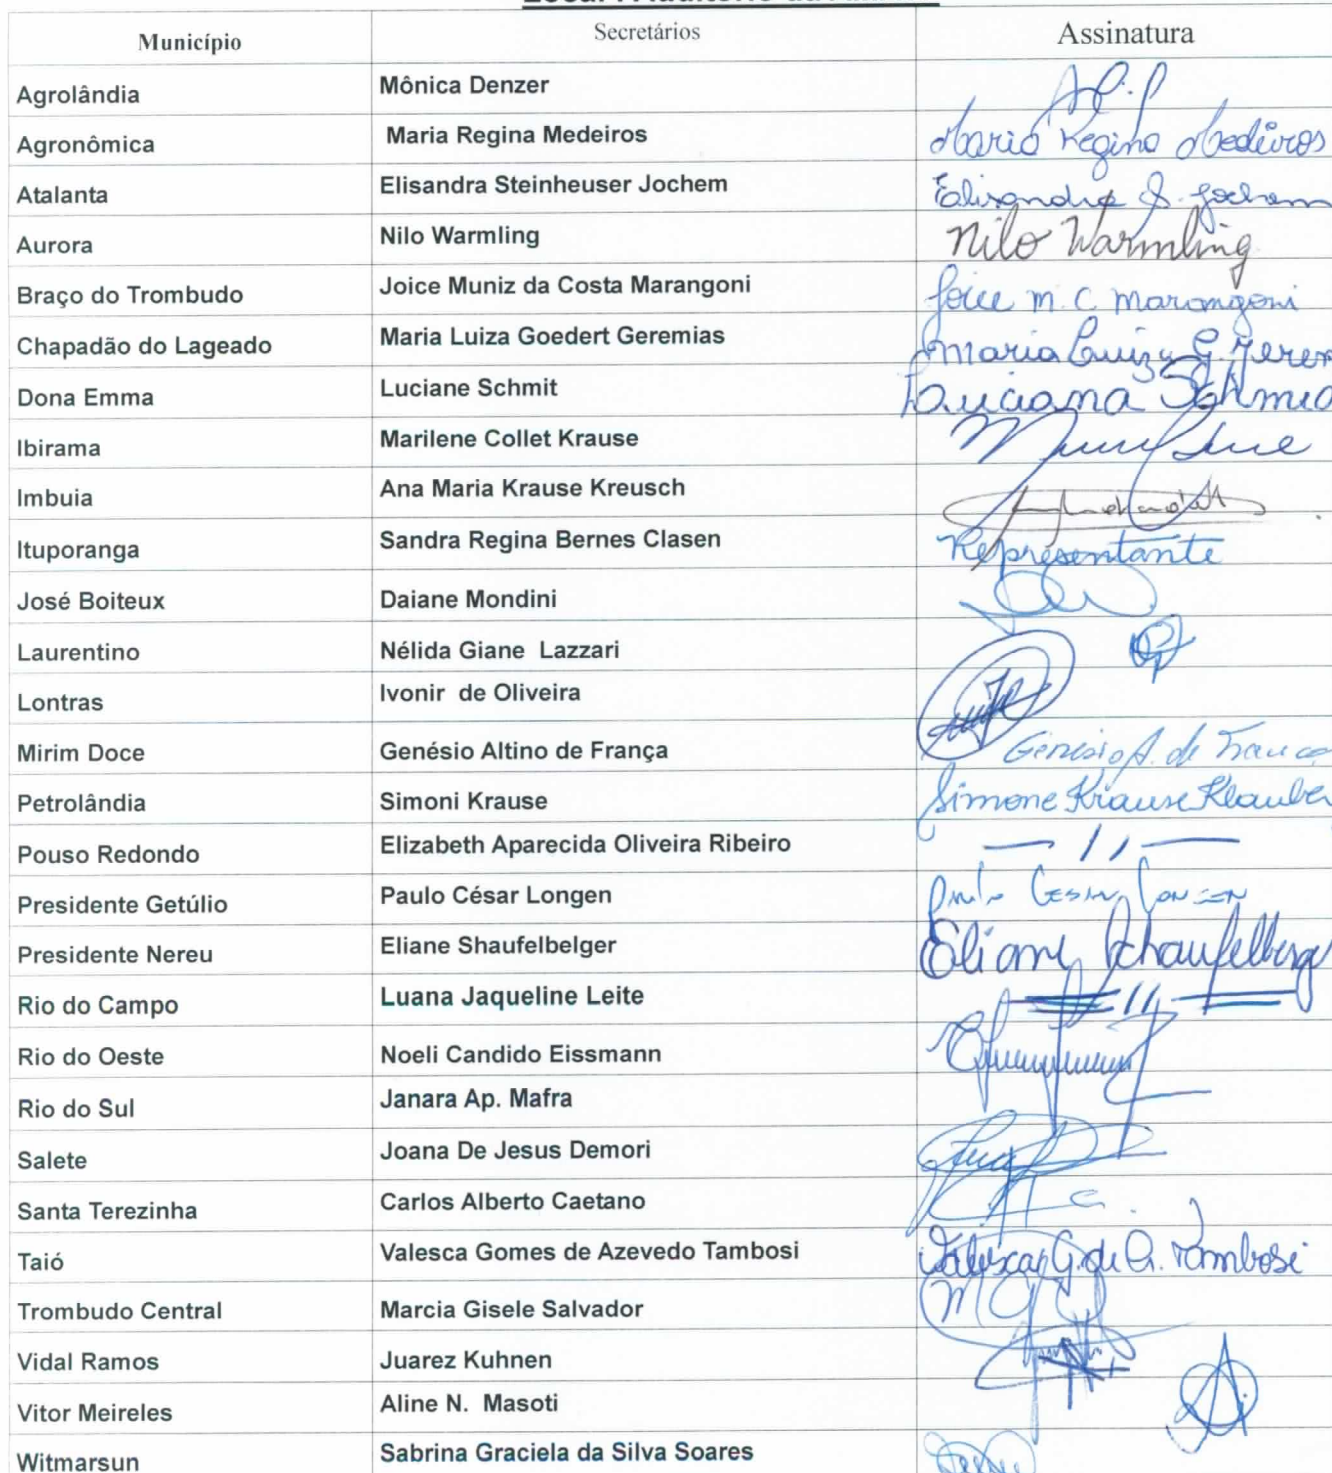 Município Secretários Assinatura
Agrolândia Mônica Denzer
Agronômica Maria Regina Medeiros Maria Regina Medeiros
Atalanta Elisandra Steinheuser Jochem Elisandra S. Jochem
Aurora Nilo Warmling Nilo Warmling
Braço do Trombudo Joice Muniz da Costa Marangoni Joice M. C. Marangoni
Chapadão do Lageado Maria Luiza Goedert Geremias Maria Luiza G. Gerem
Dona Emma Luciane Schmit Luciana Schmid
Ibirama Marilene Collet Krause
Imbuia Ana Maria Krause Kreusch
Ituporanga Sandra Regina Bernes Clasen Representante
José Boiteux Daiane Mondini
Laurentino Nélida Giane Lazzari
Lontras Ivonir de Oliveira
Mirim Doce Genésio Altino de França Genésio A. de França
Petrolândia Simoni Krause Simone Krause Klauber
Pouso Redondo Elizabeth Aparecida Oliveira Ribeiro — // —
Presidente Getúlio Paulo César Longen Paulo Cesar Longen
Presidente Nereu Eliane Shaufelbelger Eliane Schaufelberge
Rio do Campo Luana Jaqueline Leite — // —
Rio do Oeste Noeli Candido Eissmann
Rio do Sul Janara Ap. Mafra
Salete Joana De Jesus Demori
Santa Terezinha Carlos Alberto Caetano
Taió Valesca Gomes de Azevedo Tambosi Valesca G. de A. Tambosi
Trombudo Central Marcia Gisele Salvador
Vidal Ramos Juarez Kuhnen
Vitor Meireles Aline N. Masoti
Witmarsun Sabrina Graciela da Silva Soares